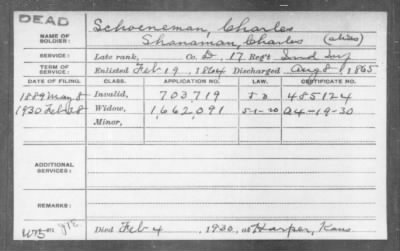 DEAD
NAME OF SOLDIER: Schoeneman, Charles
Shanaman, Charles (alias)
SERVICE: Late rank, Co. D, 17 Reg't Ind Inf
TERM OF SERVICE: Enlisted Feb 19, 1864 Discharged Aug 8, 1865
DATE OF FILING. CLASS. APPLICATION NO. LAW. CERTIFICATE NO.
1889 May 8 Invalid, 703,719 485124
1930 Feb 28 Widow, 1,662,091 5-1-20 A4-19-30
Minor,
ADDITIONAL SERVICES:
REMARKS:
Died Feb 4, 1930, at Harper, Kans